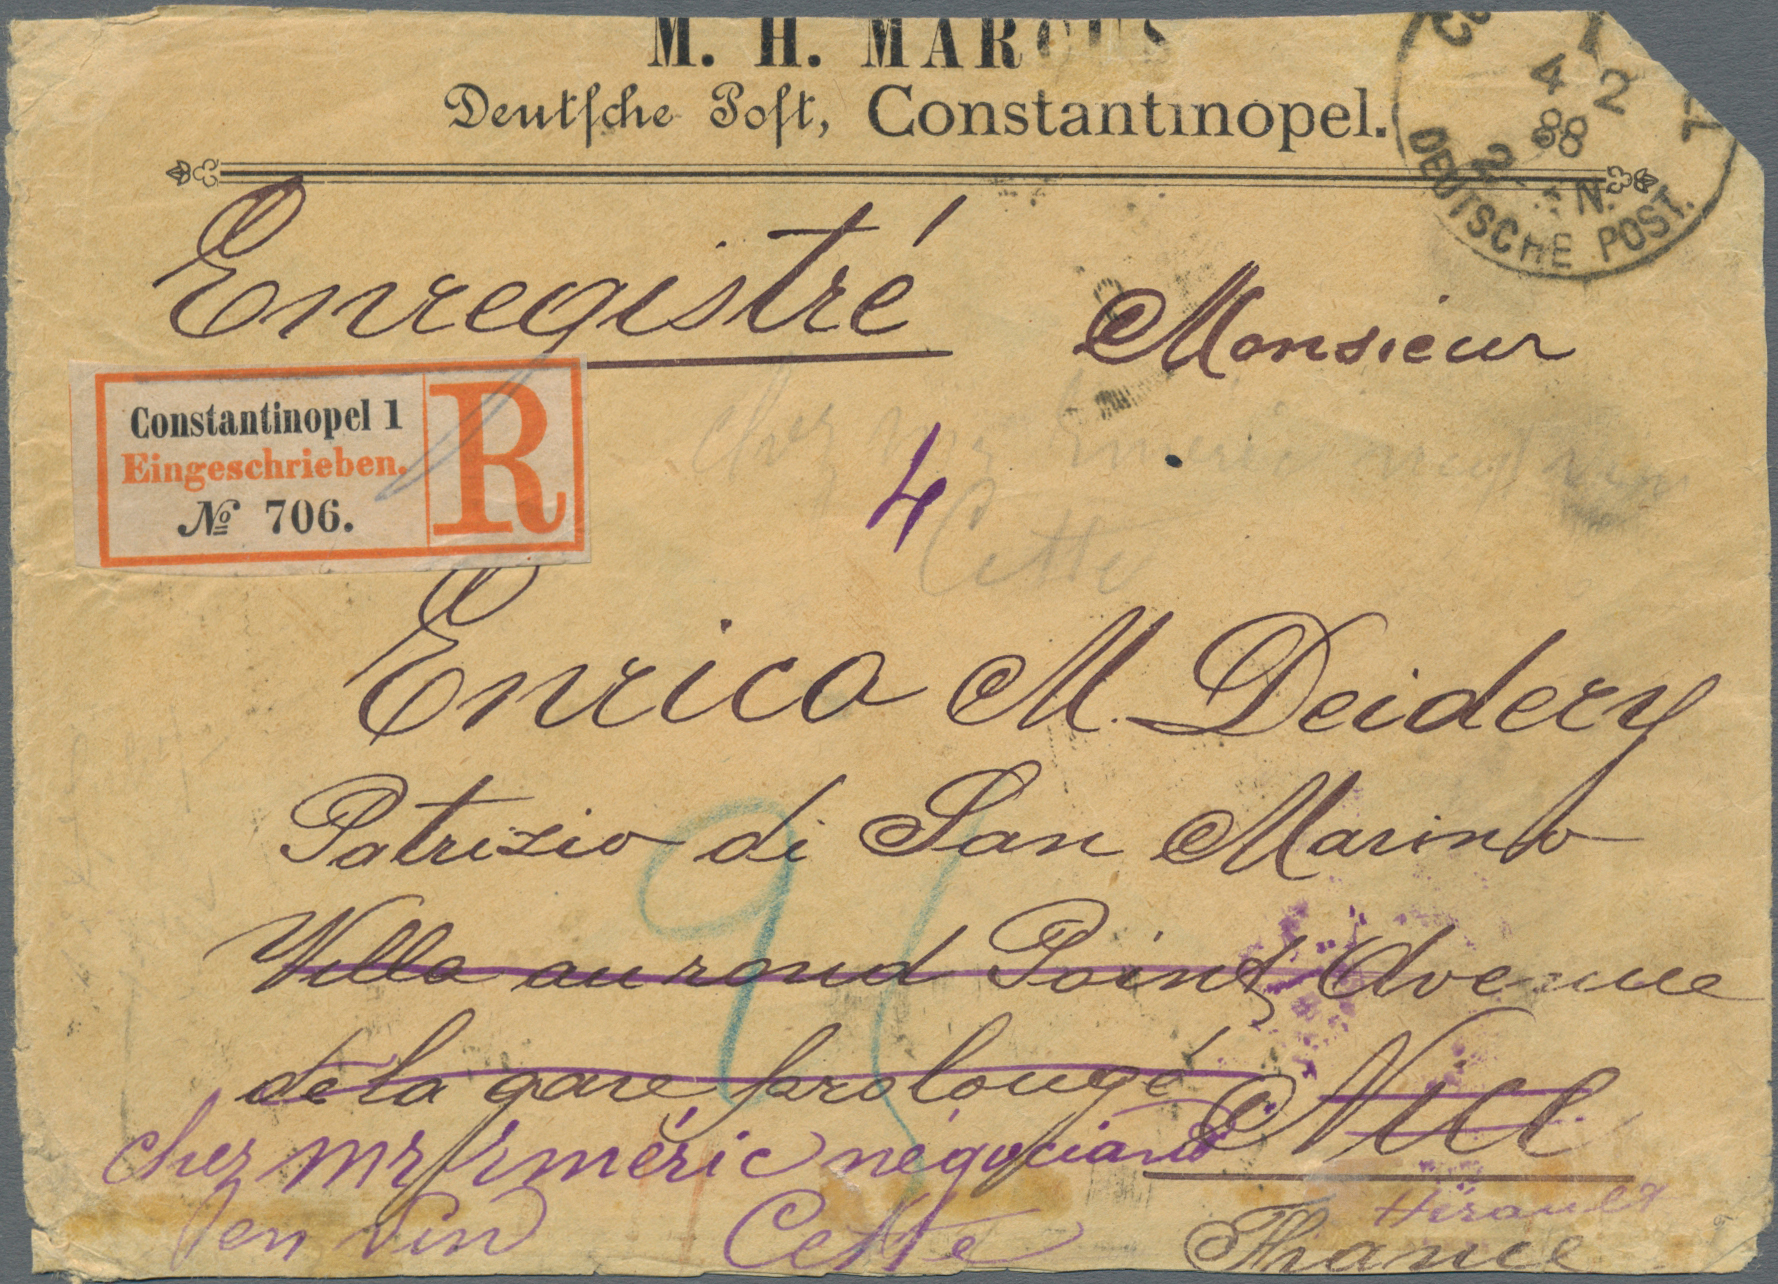 M. H. MARCUS
Deutsche Post, Constantinopel.
4 12
88
2-3 N.
DEUTSCHE POST.
Enregistré
Monsieur
Constantinopel 1
Eingeschrieben.
№ 706.
R
chez mr
4
Cette
Enrico M. Deidery
Patrizio di San Marino
Villa au rond Point Avenue
de la gare prolongé Nice
chez mr Eméric négociant
en vin Cette
Hérault
France